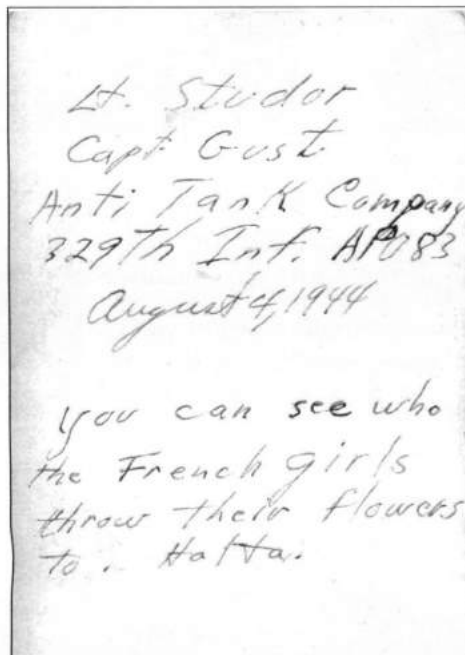 Lt. Studor
Capt Gust
Anti Tank Company
329th Inf. APO83
August 4, 1944
you can see who
the French girls
throw their flowers
to. Ha Ha.